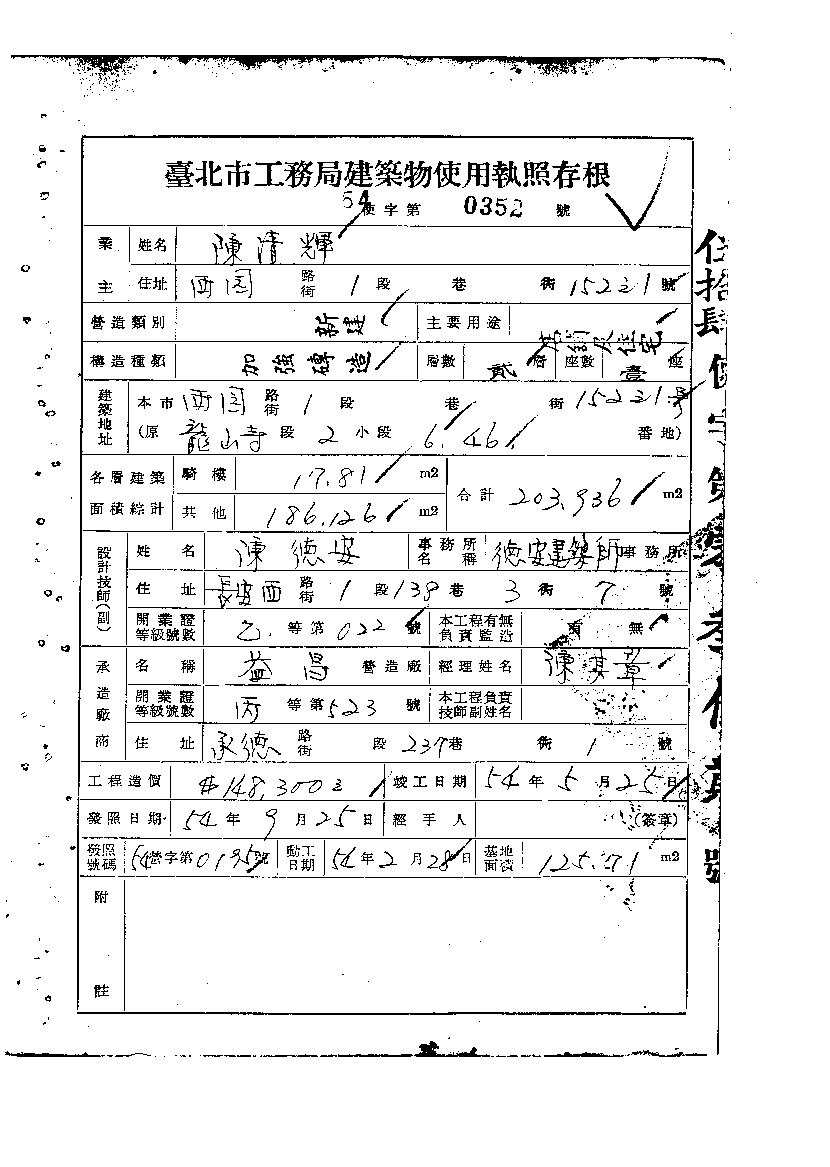 臺北市工務局建築物使用執照存根
54使字第 0352 號
業主 姓名 陳清輝
住址 西園 路街 1 段 巷 街 152之1 號
營造類別 新建 主要用途 店舖及住宅
構造種類 加強磚造 層數 貳層 座數 壹座
建築地址 本市 西園 路街 1 段 巷 街 152之1号
(原 龍山寺 段 2 小段 6.46. 番地)
各層建築面積綜計 騎樓 17.81 m2 合計 203.936 m2
其他 186.126 m2
設計技師(副) 姓名 陳德安 事務所名稱 德安建築師事務所
住址 長安西 路街 1 段 138 巷 3 街 7 號
開業證等級號數 乙.等第 022 號 本工程有無負責監造 有 無
承造廠商 名稱 益昌 營造廠 經理姓名 陳 章
開業證等級號數 丙 等第 523 號 本工程負責技師副姓名
住址 承德 路街 段 237 巷 街 1 號
工程造價 $148,300 竣工日期 54年5月25日
發照日期 54年9月25日 經手人 (簽章)
發照號碼 54營字第0195號 動工日期 54年2月28日 基地面積 125.71 m2
附註
伍拾肆使字第
號